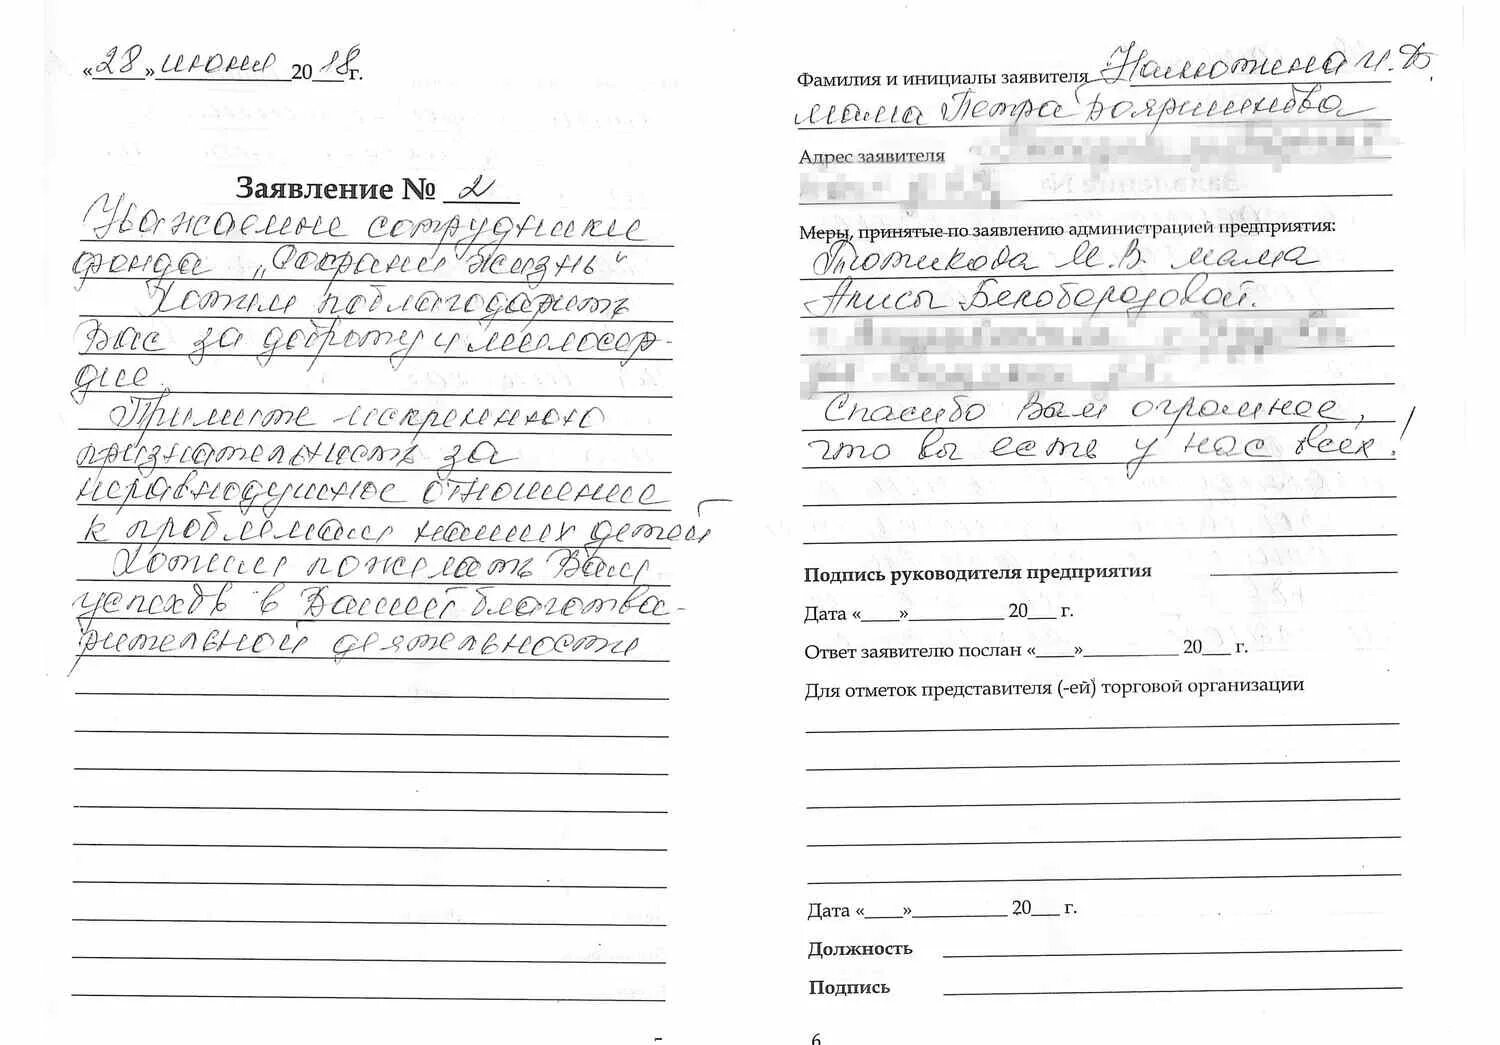 «28» июня 2018г.
Заявление № 2
Уважаемые сотрудники
фонда „Сохрани жизнь“
Хотим поблагодарить
Вас за доброту и милосер-
дие.
Примите искреннюю
признательность за
неравнодушное отношение
к проблемам наших детей
Хотим пожелать Вам
успехов в Вашей благотво-
рительной деятельности
5
Фамилия и инициалы заявителя И.В.
мама Петра Бояршинова
Адрес заявителя
Меры, принятые по заявлению администрацией предприятия:
М.В. мама
Анисы Белобородовой.
Спасибо Вам огромное,
что вы есть у нас всех!
Подпись руководителя предприятия
Дата «____»__________ 20__ г.
Ответ заявителю послан «____»__________ 20__ г.
Для отметок представителя (-ей) торговой организации
Дата «____»__________ 20__ г.
Должность
Подпись
6